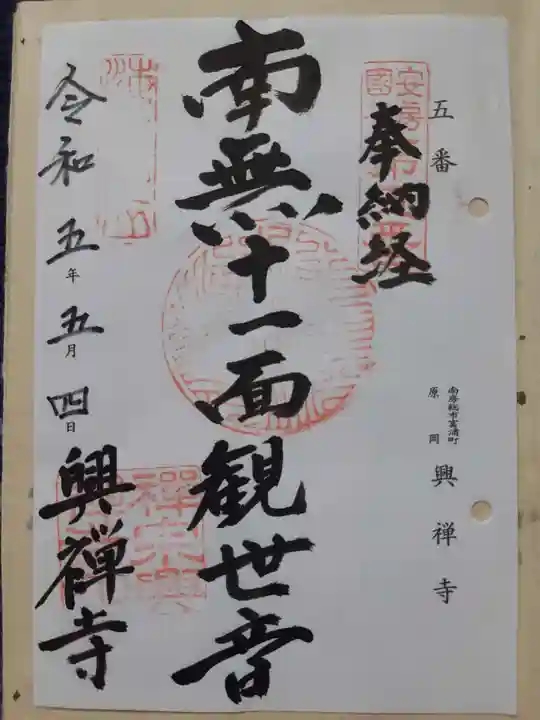 五番
南房総市富浦町
原岡
興禅寺
奉納経
南無十一面観世音
令和五年五月四日
興禅寺
安房国
禅宗興